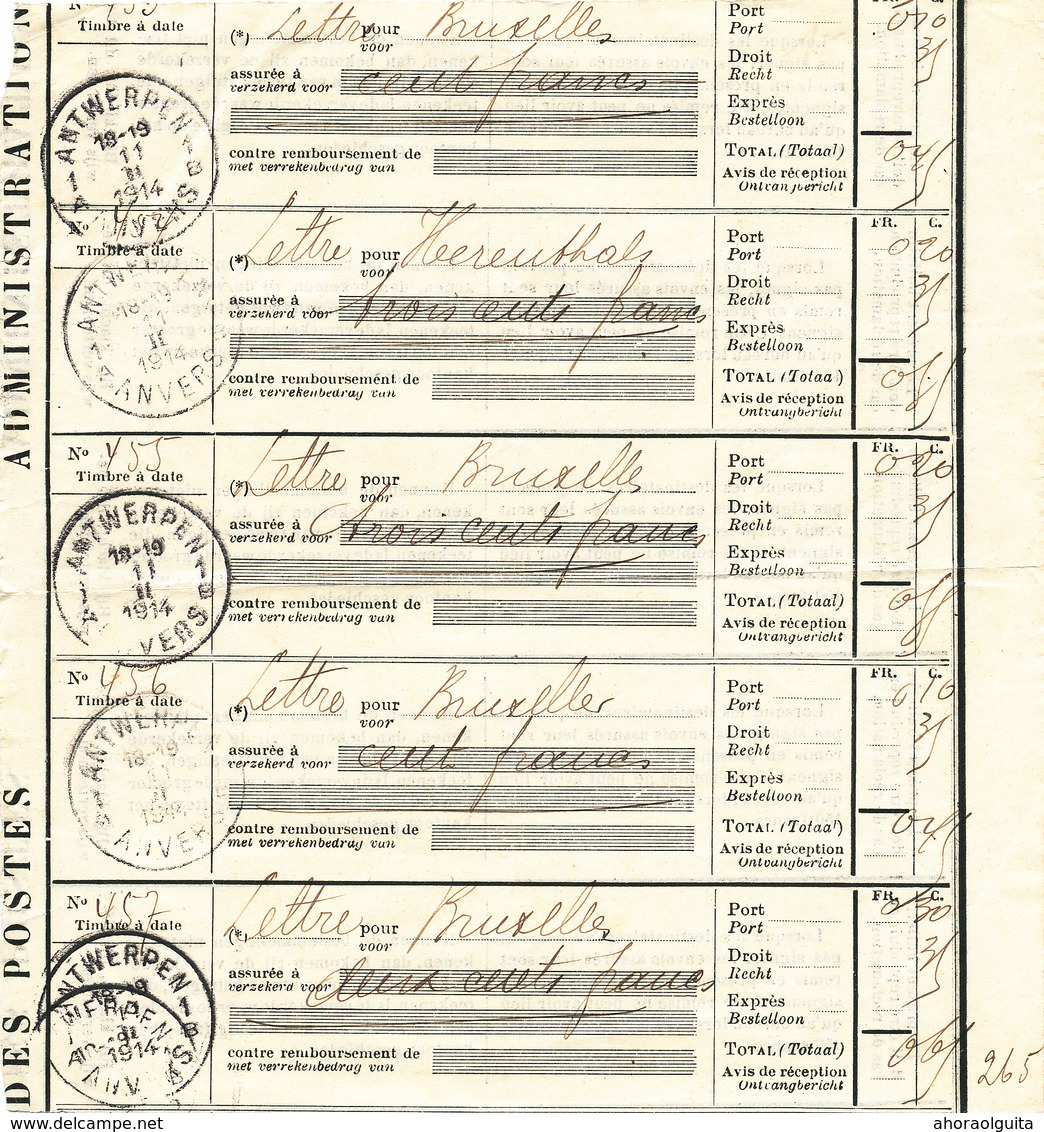 ADMINISTRATION DES POSTES
Nº 453
Timbre à date
(*) Lettre pour Bruxelles
voor
assurée à cent francs
verzekerd voor
contre remboursement de
met verrekenbedrag van
Port 0 10
Port
Droit 35
Recht
Exprès
Bestelloon
TOTAL (Totaal) 0 45
Avis de réception
Ontvangbericht
ANTWERPEN 1 B
18-19
11
II
1914
ANVERS
Nº 454
Timbre à date
(*) Lettre pour Herenthals
voor
assurée à trois cents francs
verzekerd voor
contre remboursement de
met verrekenbedrag van
FR. C.
Port 0 20
Port
Droit 35
Recht
Exprès
Bestelloon
TOTAL (Totaal) 0 55
Avis de réception
Ontvangbericht
18-19
II
1914
ANVERS
Nº 455
Timbre à date
(*) Lettre pour Bruxelles
voor
assurée à trois cents francs
verzekerd voor
contre remboursement de
met verrekenbedrag van
FR. C.
Port 0 20
Port
Droit 35
Recht
Exprès
Bestelloon
TOTAL (Totaal) 0 55
Avis de réception
Ontvangbericht
ANTWERPEN 1 B
18-19
11
II
1914
Nº 456
Timbre à date
(*) Lettre pour Bruxelles
voor
assurée à cent francs
verzekerd voor
contre remboursement de
met verrekenbedrag van
FR. C.
Port 0 10
Port
Droit 35
Recht
Exprès
Bestelloon
TOTAL (Totaal) 0 45
Avis de réception
Ontvangbericht
18-19
II
1914
ANVERS
Nº 457
Timbre à date
(*) Lettre pour Bruxelles
voor
assurée à deux cents francs
verzekerd voor
contre remboursement de
met verrekenbedrag van
FR. C.
Port 0 30
Port
Droit 35
Recht
Exprès
Bestelloon
TOTAL (Totaal) 0 65
Avis de réception
Ontvangbericht
ANTWERPEN 1 B
1914
265
www.delcampe.net
ahoraolguita